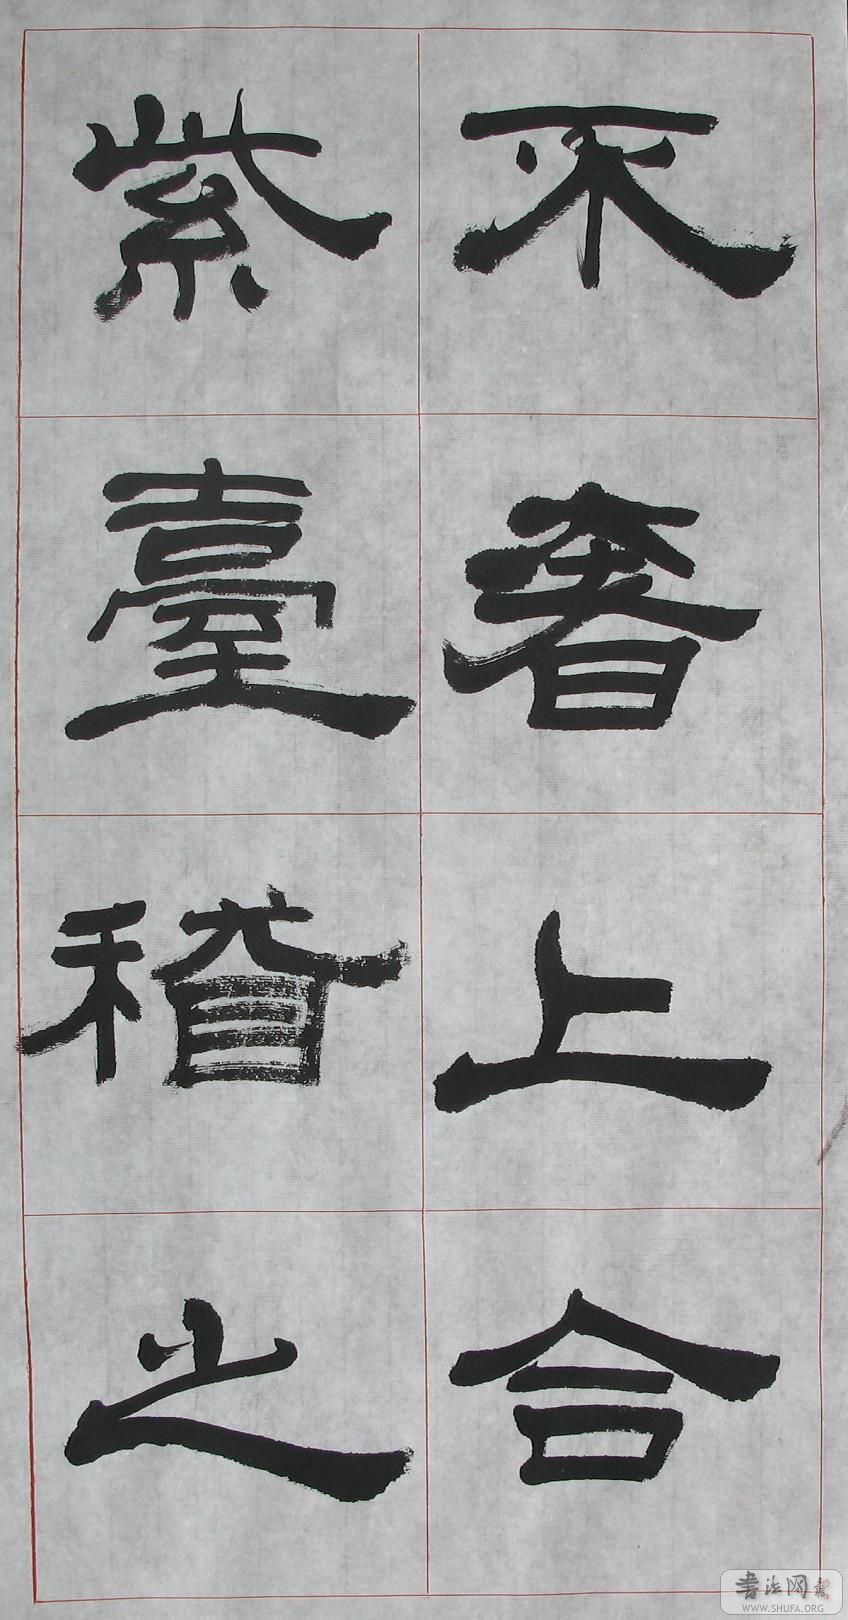 不奢上合
紫臺稽之
書法网
WWW.SHUFA.ORG